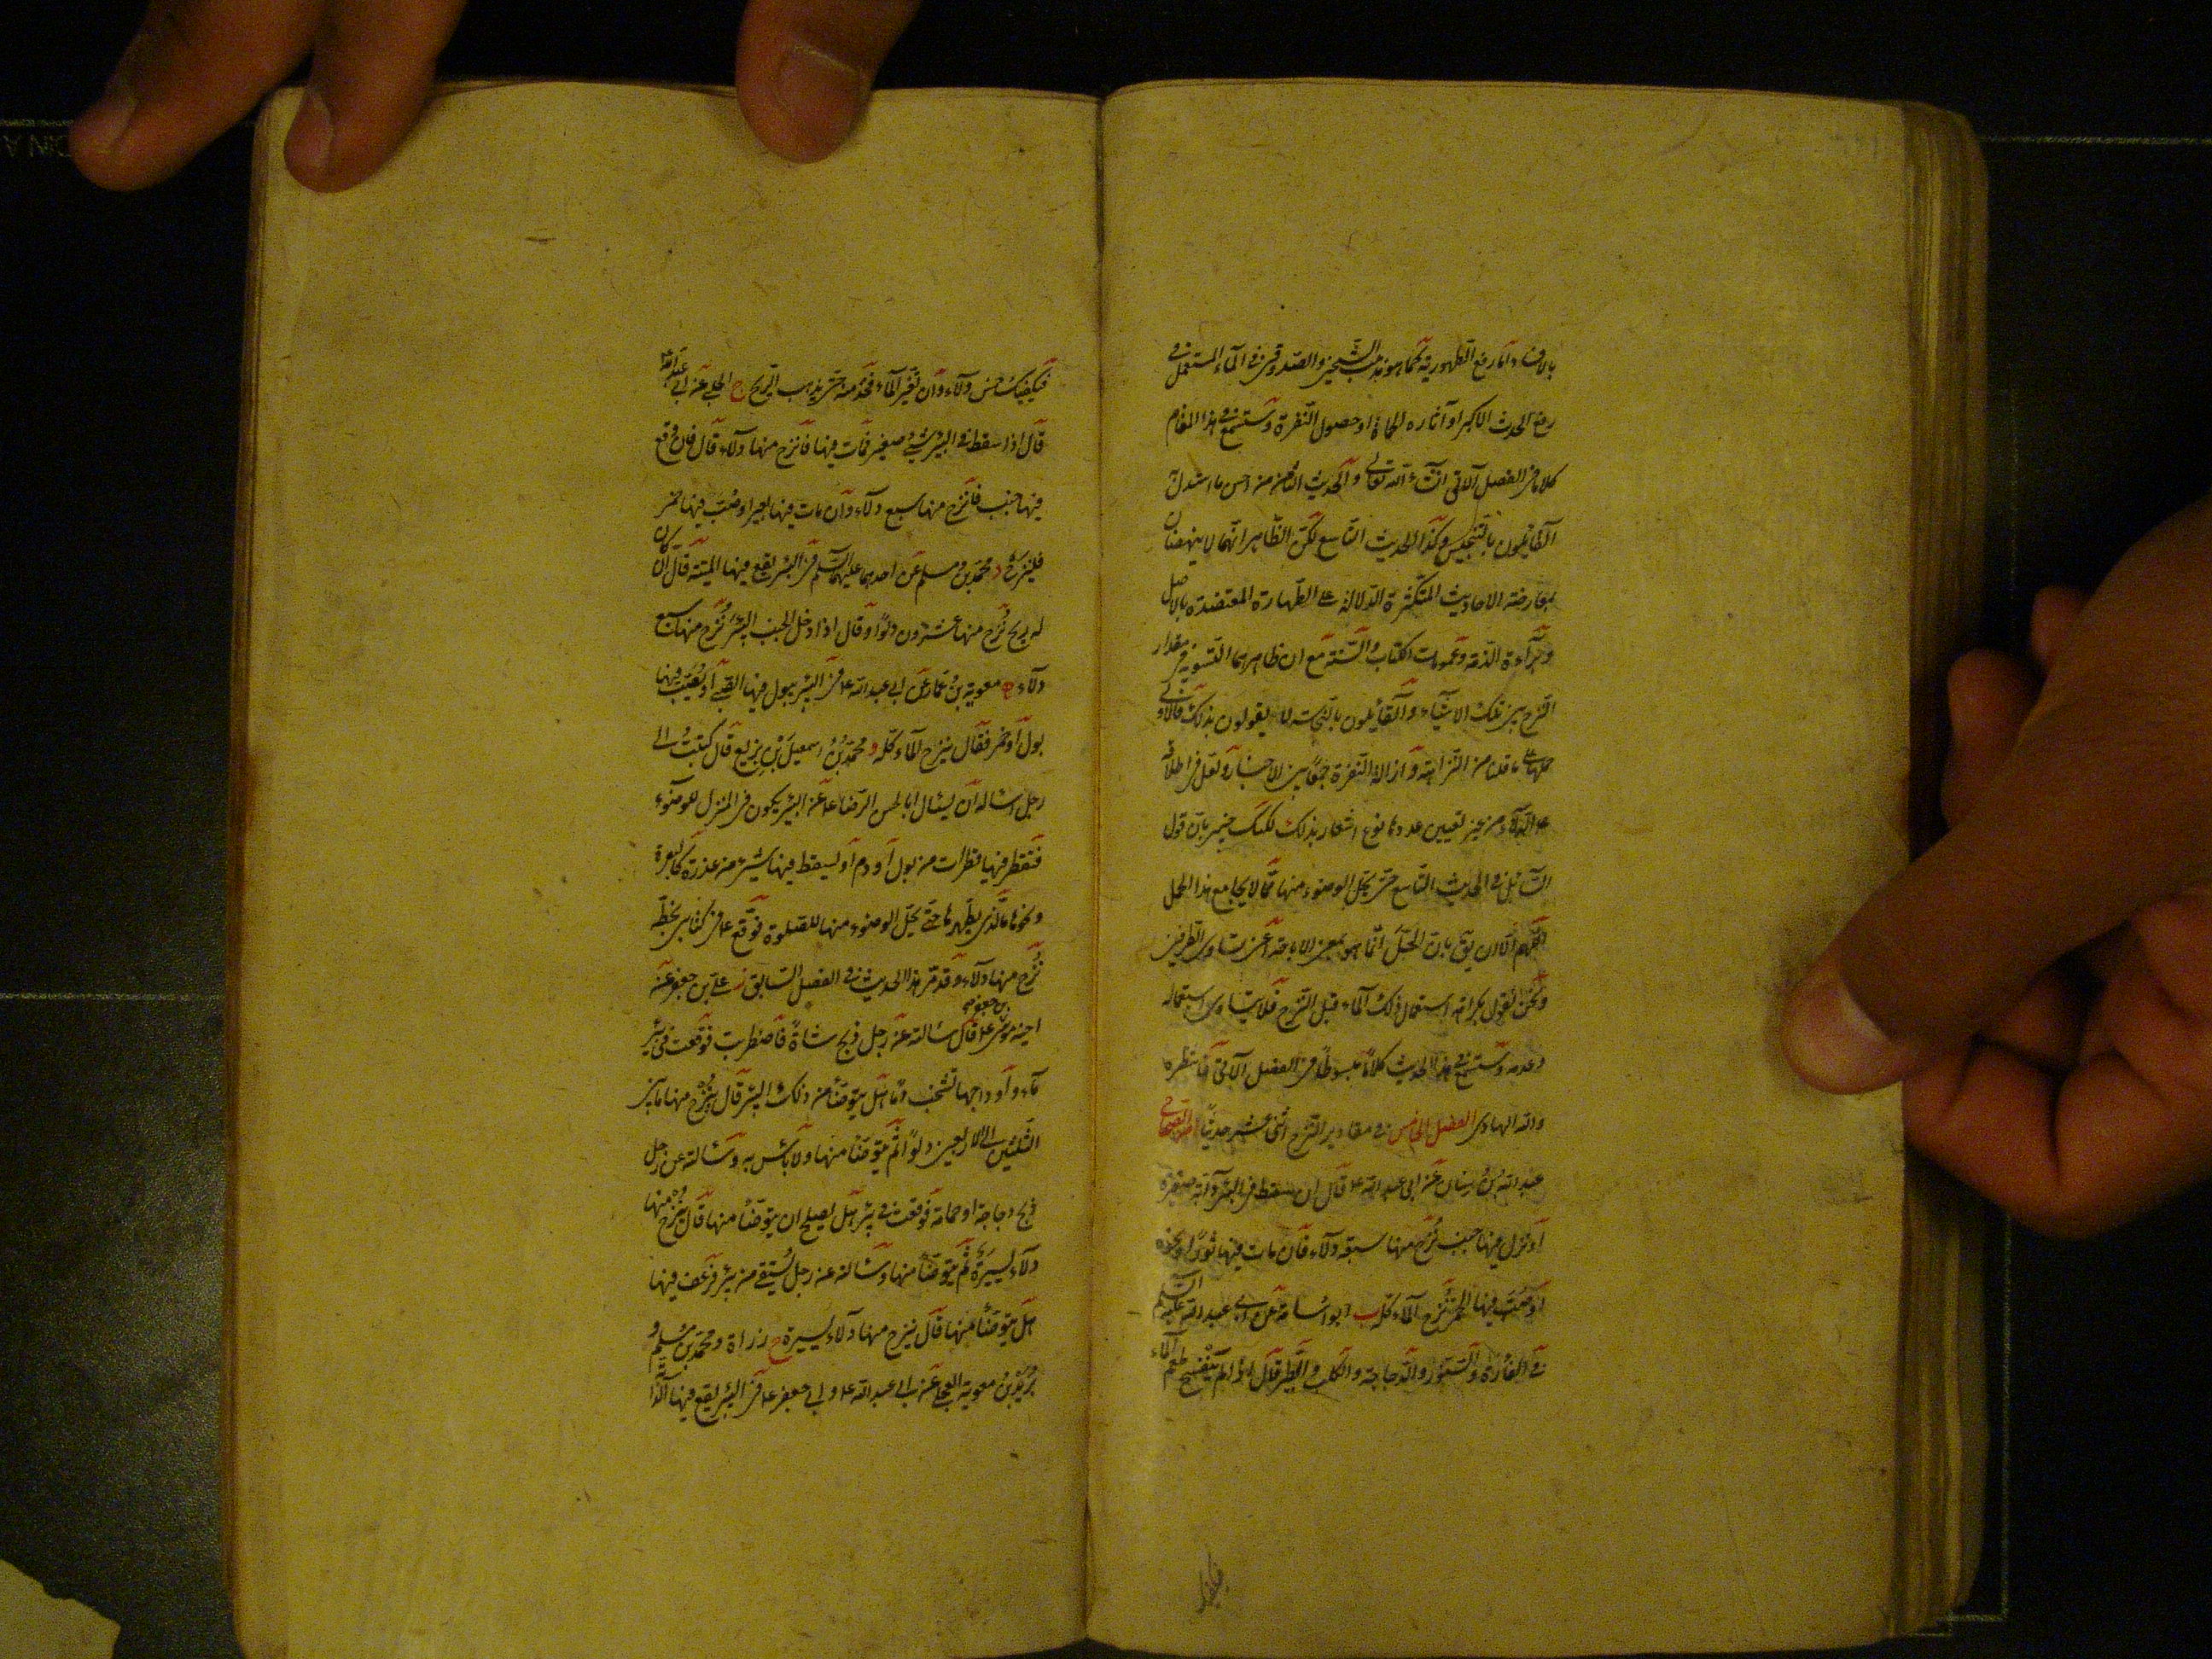 بالافساد اما رفع الطهورية كما هو مذهب الشيخين والصدوق في الماء المستعمل في
رفع الحدث الاكبر او آثاره للحمأة او حصول النفرة وستسمع في هذا المقام
كلاما في الفصل الآتي ان شاء الله تعالى والحديث الثامن من احسن ما استدل
القائلون بالتنجيس وكذا الحديث التاسع لكن الظاهر انهما لا ينهضان
لمعارضة الاحاديث المتكثرة الدلالة على الطهارة المعتضدة بالاصل
وبراءة الذمة وعمومات الكتاب والسنة مع ان ظاهرهما التسوية في مقدار
النزح بين تلك الاشياء والقائلون بالنجاسة لا يقولون بذلك فالاولى
حملهما على ما قلنا من النزاهة وازالة النفرة جمعا بين الاخبار ولعل في اطلاقه
عم الدلاء من غير تعيين عدد ما نوع اشعار بذلك لكنك خبير بان قول
السائل في الحديث التاسع حتى يحل الوضوء منها مما لا يجامع هذا الحمل
اللهم الا ان يقال بان الحل انما هو بمعنى الاباحة اعني تساوى الطرفين
ونحن نقول بكراهة استعمال ذلك الماء قبل النزح فلا يتساوى استعماله
وعدمه وستسمع في هذا الحديث كلاما مبسوطا في الفصل الآتي فانتظره
والله الهادى الفصل الخامس في مقادير النزح اثنى عشر حديثا ا من الصحاح
عبد الله بن سنان عن ابى عبد الله ع قال ان سقط في البئر دابة صغيرة
او نزل فيها جنب نزح منها سبعة دلاء فان مات فيها ثور او نحوه
او صب فيها الخمر نزح الماء كله ب ابو اسامة عن ابى عبد الله عليه السلام
في الفأرة والسنور والدجاجة والكلب والطير قال اذا لم يتفسخ او يتغير طعم الماء
فيكفيك
فيكفيك خمس دلاء وان تغير الماء فخذ منه حتى يذهب الريح ج الحلبي عن ابى عبد الله ع
قال اذا سقط في البئر شيء صغير فمات فيها فانزح منها دلاء قال فان وقع
فيها جنب فانزح منها سبع دلاء وان مات فيها بعير او صب فيها خمر
فلينزح د محمد بن مسلم عن احدهما عليهما السلم في البئر يقع فيها الميتة قال ان كان
له ريح نزح منها عشرون دلوا وقال اذا دخل الجنب البئر نزح منها سبع
دلاء ه معوية بن عمار عن ابى عبد الله ع في البئر يبول فيها الصبى او يصب فيها
بول او خمر فقال ينزح الماء كله و محمد بن اسمعيل بن بزيع قال كتبت الى
رجل اسأله ان يسأل ابا الحسن الرضا ع عن البئر يكون في المنزل للوضوء
فتقطر فيها قطرات من بول او دم او يسقط فيها شيء من عذرة كالبعرة
ونحوها ما الذى يطهرها حتى يحل الوضوء منها للصلوة فوقع ع في كتابى بخطه
نزح منها دلاء وقد مر هذا الحديث في الفصل السابق ز على بن جعفر عن
اخيه موسى بن جعفر ع قال سالته عن رجل ذبح شاة فاضطربت فوقعت في بئر
ماء واوداجها تشخب دما هل يتوضأ من ذلك البئر قال ينزح منها ما بين
الثلثين الى الاربعين دلوا ثم يتوضأ منها ولا بأس به وسألته عن رجل
ذبح دجاجة او حمامة فوقعت في بئر هل يصلح ان يتوضأ منها قال ينزح منها
دلاء يسيرة ثم يتوضأ منها وسالته عن رجل يستقى من بئر فرعف فيها
هل يتوضأ منها قال ينزح منها دلاء يسيرة ح زرارة ومحمد بن مسلم و
بريد بن معوية العجلى عن ابى عبد الله ع وابى جعفر ع في البئر يقع فيها الدابة